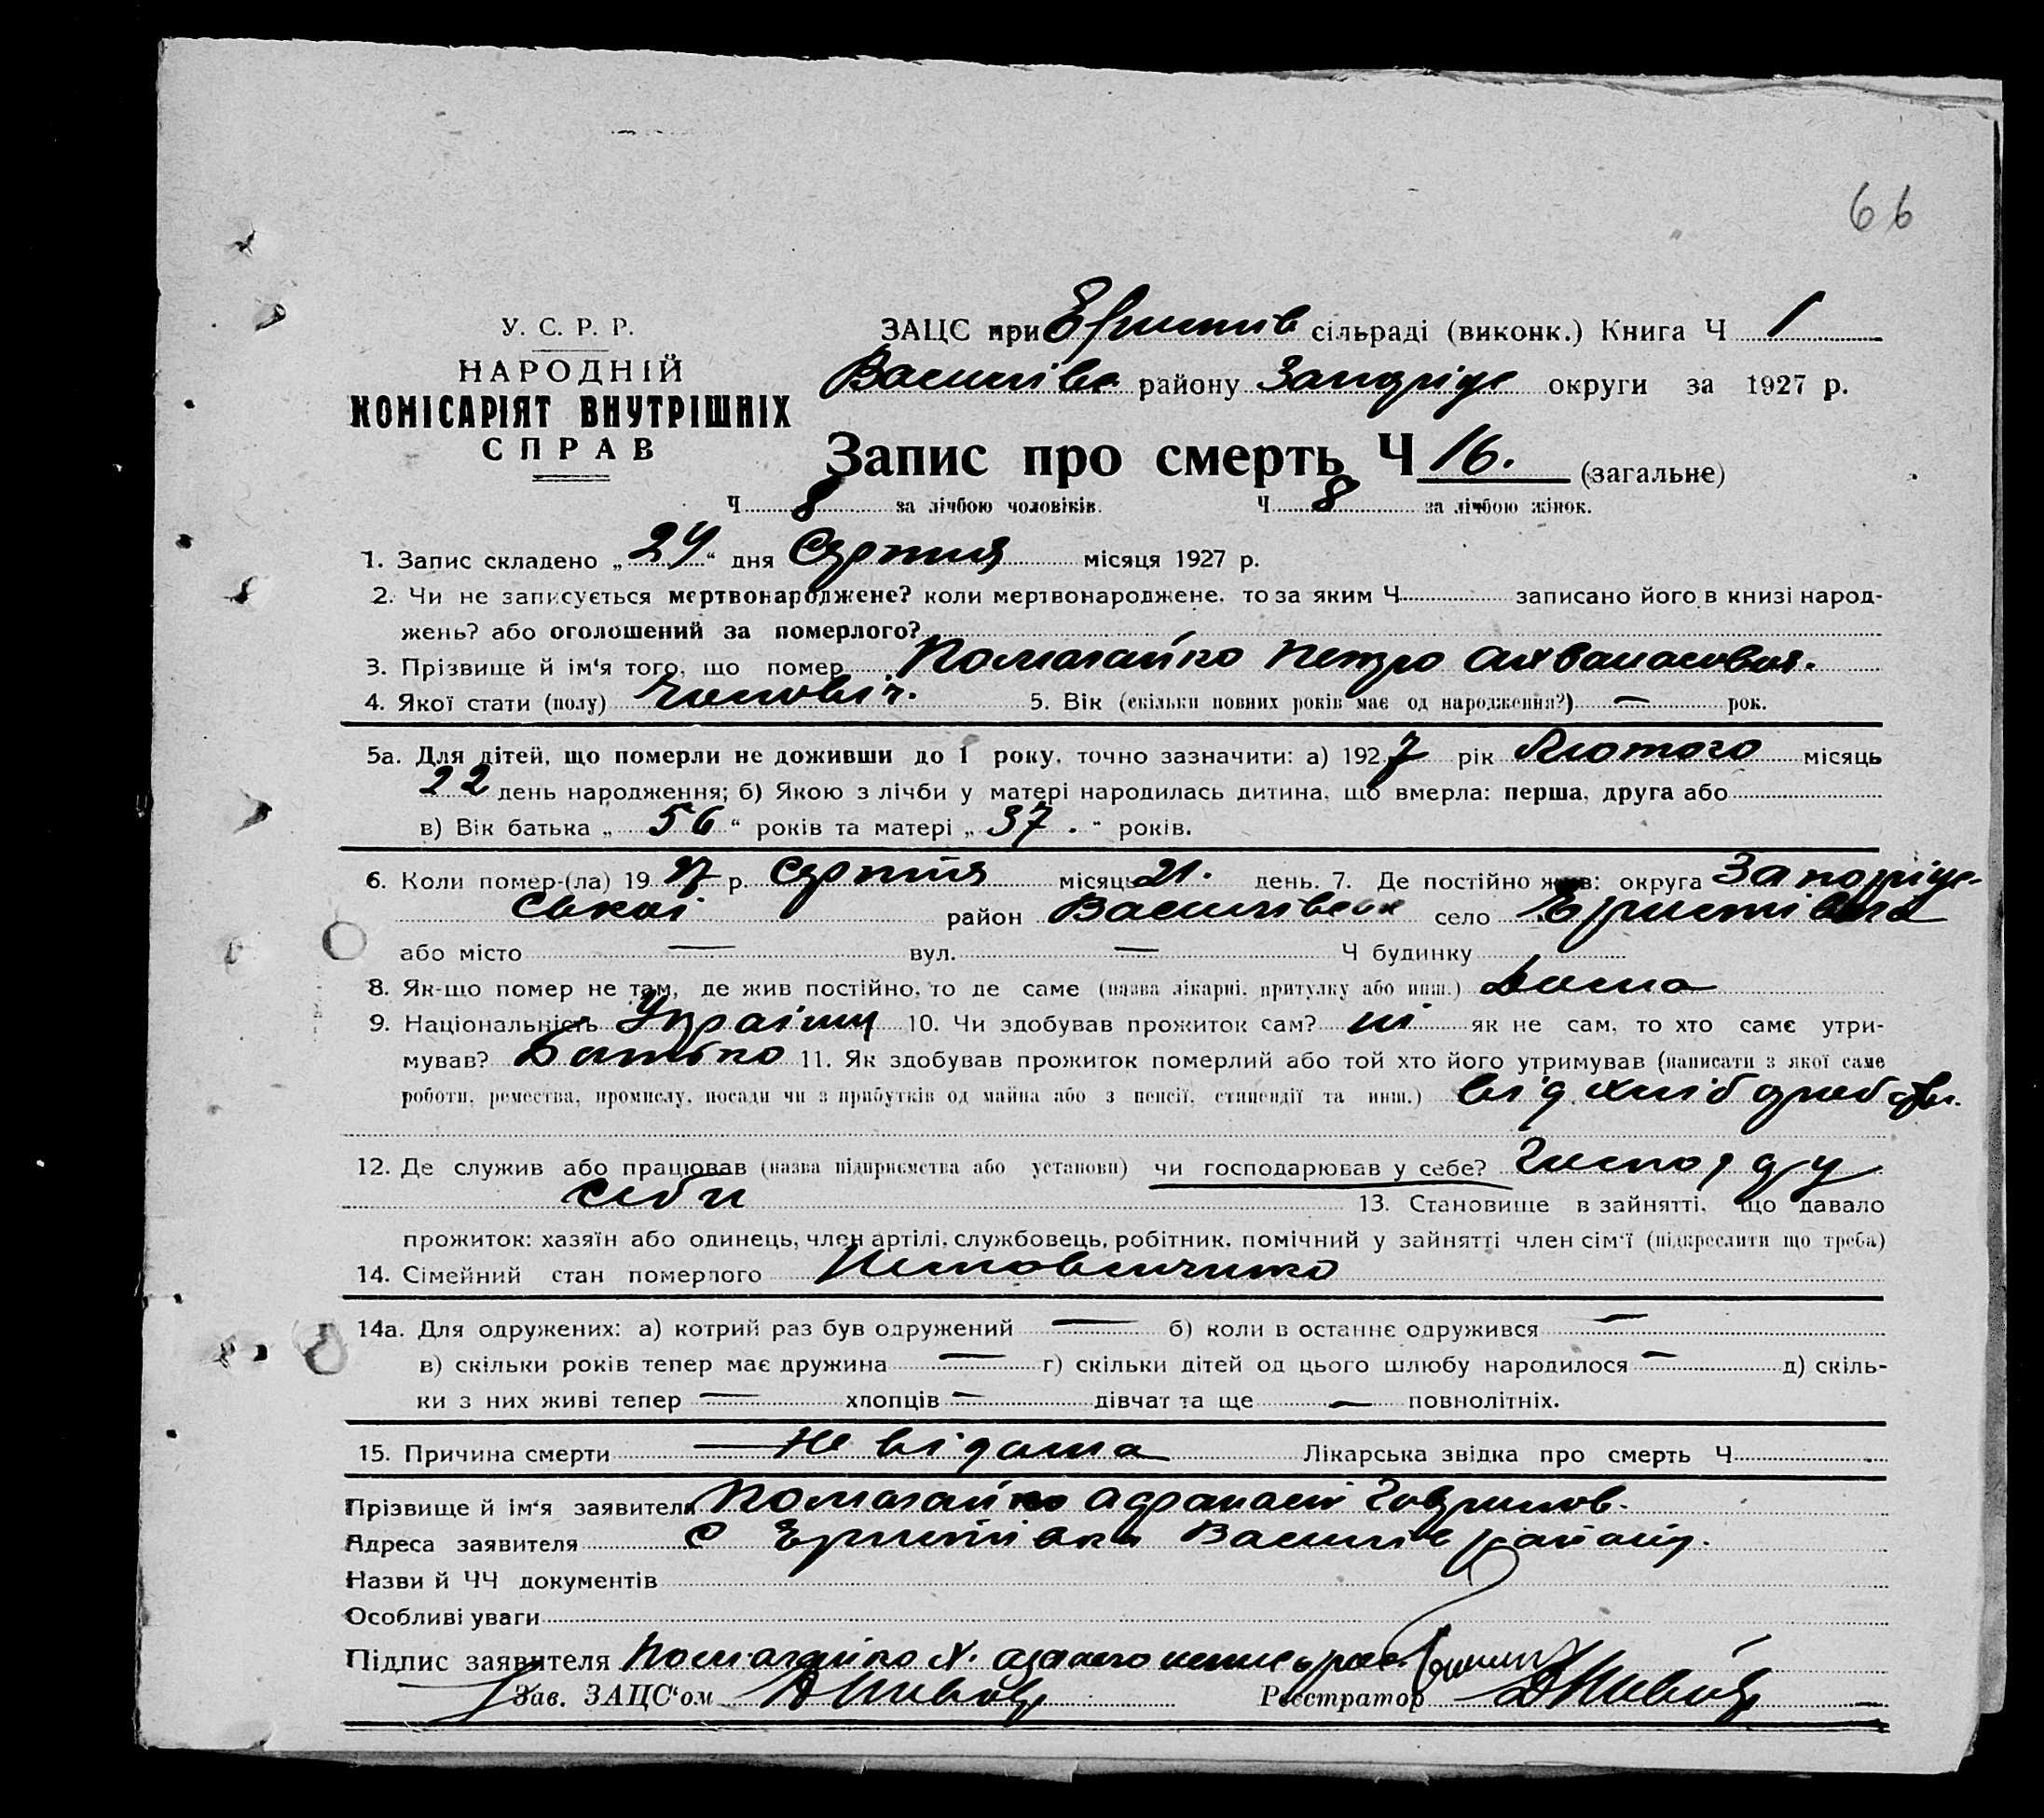 66
У. С. Р. Р.
НАРОДНІЙ
КОМІСАРІЯТ ВНУТРІШНІХ
СПРАВ
ЗАЦС при Еристів сільраді (виконк.) Книга Ч 1
Василівс району Запоріж округи за 1927 р.
Запис про смерть Ч 16. (загальне)
Ч 8 за лічбою чоловіків. Ч 8 за лічбою жінок.
1. Запис складено „24“ дня Серпня місяця 1927 р.
2. Чи не записується мертвонароджене? коли мертвонароджене, то за яким Ч записано його в книзі народ-
жень? або оголошений за померлого?
3. Прізвище й ім‘я того, що помер Помагайко Петро
4. Якої стати (полу) Чоловіч. 5. Вік (скільки повних років має од народження?) — рок.
5а. Для дітей, що померли не доживши до 1 року, точно зазначити: а) 1927 рік Лютого місяць
22 день народження; б) Якою з лічби у матері народилась дитина, що вмерла: перша, друга або
в) Вік батька „56“ років та матері „37.“ років.
6. Коли помер-(ла) 1927 р. Серпня місяць 21. день. 7. Де постійно жив: округа Запоріж-
ської район Василівськ село Еристівка
або місто — вул. — Ч будинку
8. Як-що помер не там, де жив постійно, то де саме (назва лікарні, притулку або инш.) Дома
9. Національність Украінец 10. Чи здобував прожиток сам? ні як не сам, то хто саме утри-
мував? Батько 11. Як здобував прожиток померлий або той хто його утримував (написати з якої саме
роботи, ремества, промислу, посади чи з прибутків од майна або з пенсії, стипендії та инш.) від хлібороб
12. Де служив або працював (назва підприємства або установи) чи господарював у себе? Господ у
себи 13. Становище в зайнятті, що давало
прожиток: хазяїн або одинець, член артілі, службовець, робітник, помічний у зайнятті член сім‘ї (підкреслити що треба)
14. Сімейний стан померлого
14а. Для одружених: а) котрий раз був одружений — б) коли в останнє одружився —
в) скільки років тепер має дружина — г) скільки дітей од цього шлюбу народилося — д) скіль-
ки з них живі тепер — хлопців — дівчат та ще — повнолітніх.
15. Причина смерти — Не відома Лікарська звідка про смерть Ч
Прізвище й ім‘я заявителя Помагайко Афанасій Гаврилов.
Адреса заявителя с Еристівка Василів району.
Назви й ЧЧ документів
Особливі уваги
Підпис заявителя Помагайко
Зав. ЗАЦС‘ом
Реєстратор